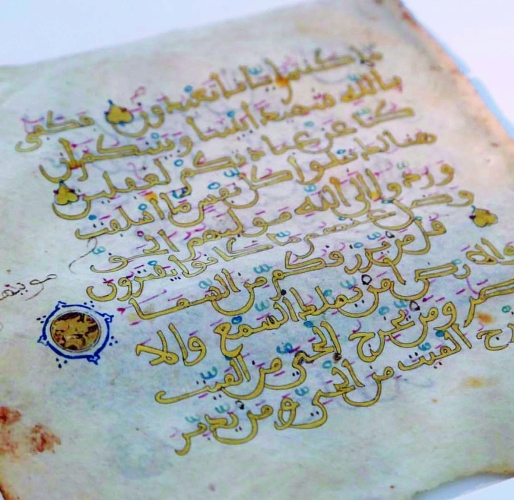 ما كنتم إيانا تعبدون فكفى
بالله شهيدا بيننا وبينكم إن
كنا عن عبادتكم لغفلين
هنالك تبلوا كل نفس ما أسلفت
وردوا إلى الله موليهم الحق
وضل عنهم ما كانوا يفترون
قل من يرزقكم من السما
والارض أمن يملك السمع والا
بصر ومن يخرج الحي من الميت
خرج الميت من الحي ومن يدبر